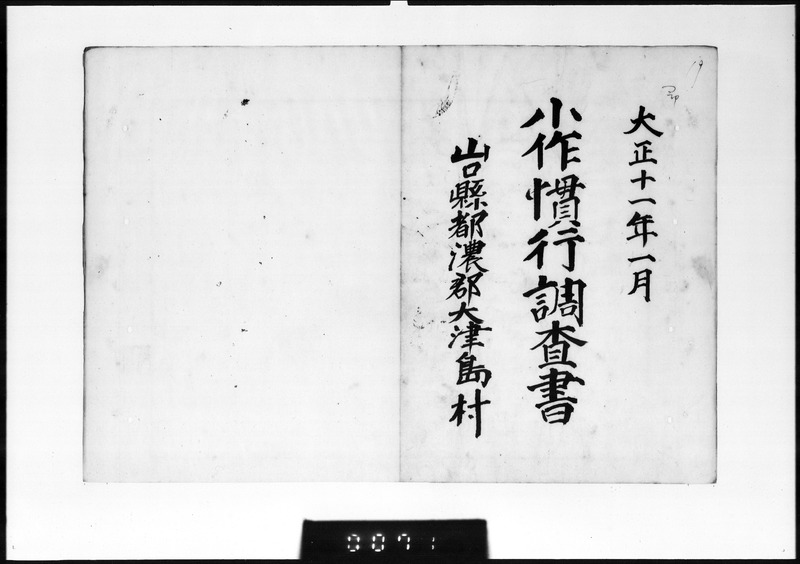 19
大正十一年一月
小作慣行調査書
山口縣都濃郡大津島村
0071